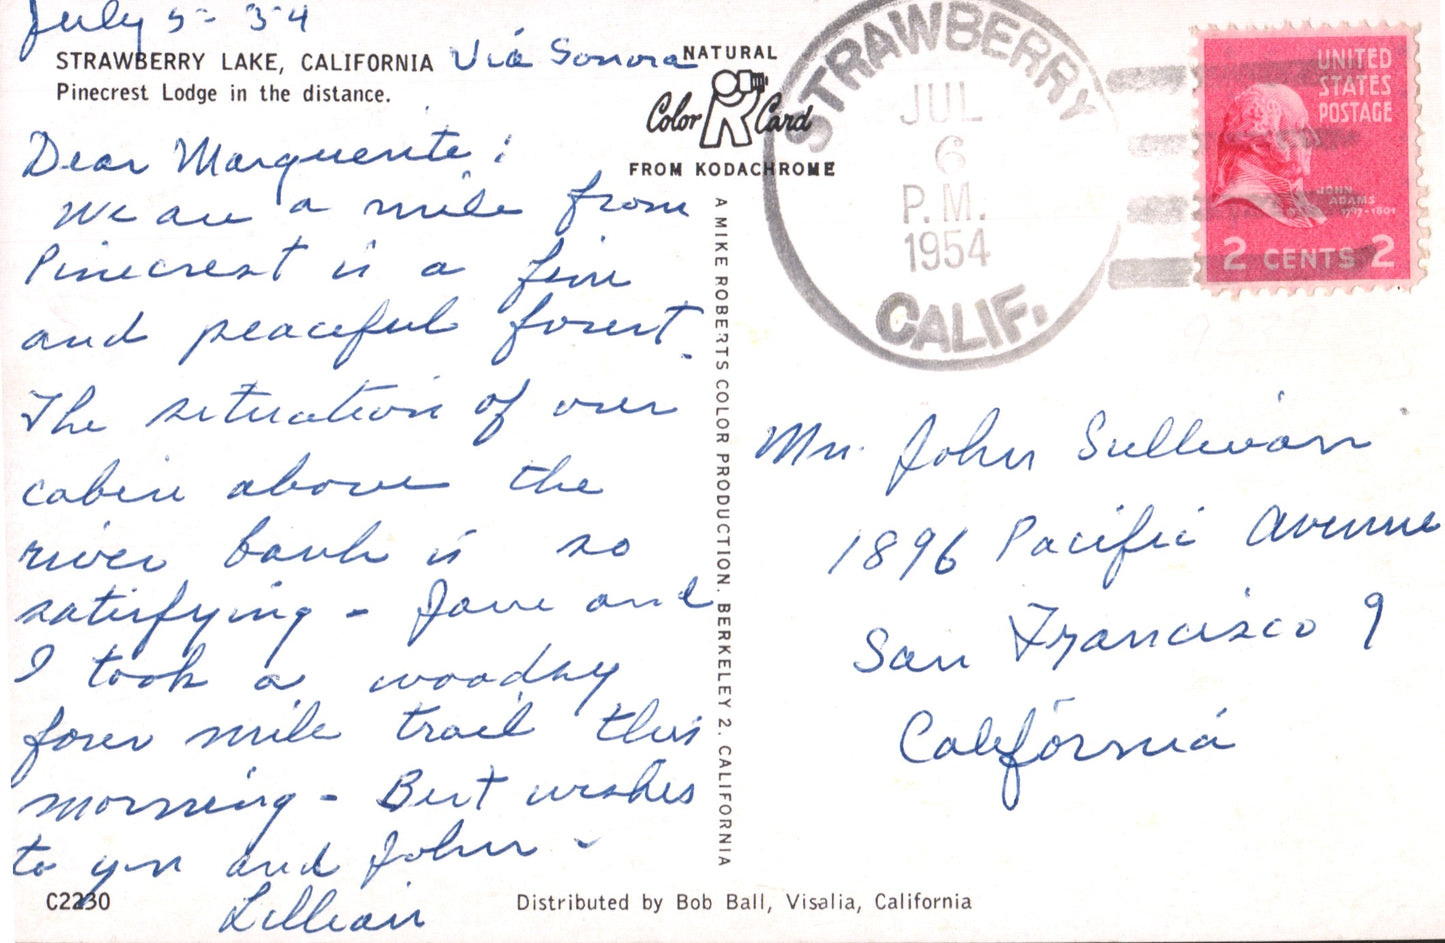 July 5 - 54
STRAWBERRY LAKE, CALIFORNIA
Via Sonora
Pinecrest Lodge in the distance.
Dear Marguerite:
We are a mile from
Pinecrest in a fine
and peaceful forest.
The situation of our
cabin above the
river bank is so
satisfying - Jane and
I took a woodsy
four mile trail this
morning - Best wishes
to you and John -
Lillian
C2230
NATURAL
Color Card
FROM KODACHROME
A MIKE ROBERTS COLOR PRODUCTION. BERKELEY 2. CALIFORNIA
Distributed by Bob Ball, Visalia, California
STRAWBERRY
JUL
6
P.M.
1954
CALIF.
UNITED
STATES
POSTAGE
JOHN
ADAMS
1797-1801
2 CENTS 2
John Sullivan
1896 Pacific Avenue
San Francisco 9
California